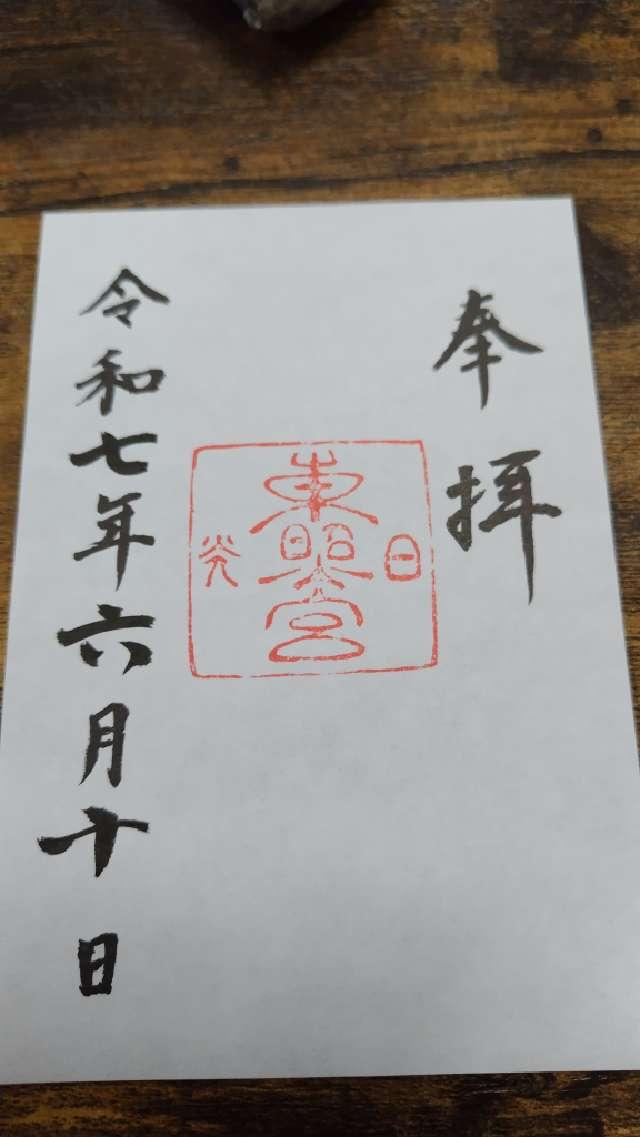 奉拝
日
東照宮
光
令和七年六月十日